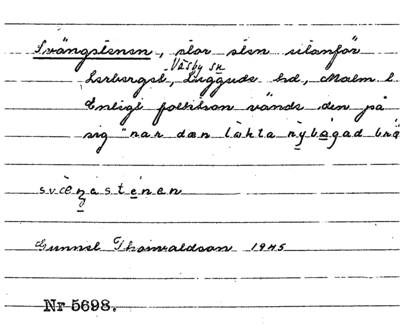 Svängstenen, stor sten utanför
Väsby sn
Lerberget, Luggude hd, Malm. l.
Enligt folktron vände den på
sig "nar dæn lokta nybagad brø
svæŋastenen
Gunnel Thorvaldson 1945
Nr 5698.